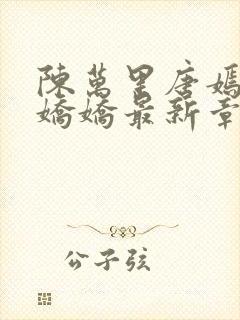 陳萬里唐嫣
嬌嬌最新章
公子弦